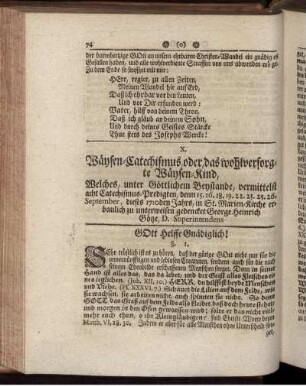 74 (0)
der barmhertzige GOtt an unsern ehrbaren Christen-Wandel ein gnädig es
Gefallen haben, und alle wohlverdiente Straffen von uns abwenden mög
Zu dem Ende so seuffzet mit mir:
HErr, regier, zu allen Zeiten,
Meinen Wandel hie auf Erd,
Daß ich ehrbar vor den Leuten,
Und vor Dir erfunden werd:
Vater, hilff von deinem Thron,
Daß ich gläub an deinen Sohn,
Und durch deines Geistes Stärcke
Thue stets des Josephs Wercke!
X.
Wäysen-Catechismus oder, das wohlversorg-
te Wäysen-Kind,
Welches, unter Göttlichem Beystande, vermittelst
acht Catechismus-Predigten, denn 15. 16. 18. 19. 22. 23. 25. 26.
September, dieses 1710den Jahrs, in St. Marien-Kirche er-
baulich zu unterweisen gedencket George Heinrich
Götze, D. Superintendens
GOtt Helffe Gnädiglich!
§. 1.
zu hören, daß der gütige Gott nicht nur für die
sondern auch für die nach
seinem Ebenbilde erschaffenen Menschen sorget. Denn in seiner
Hand ist alles das, das da lebet, und der Geist alles Fleisches ei-
nes ieglichen. (Job. XII, 10.) HERR, du hilffest beyde Menschen
und Viehe. (Pf. XXXVI. 7.) Schauet die Lilien auf dem Felde, wie
sie wachsen, sie arbeiten nicht, auch spinnen sie nicht. So denn
GOTT das Graß auf dem Felde also kleidet, daß doch heute stehet
und morgen in den Ofen geworffen wird; solte er das nicht viel-
mehr euch thun, o ihr Kleingläubigen? sind Christi Worte beym
Matth. VI, 28. 30. Indem er aber für alle Menschen ohne Unterscheid